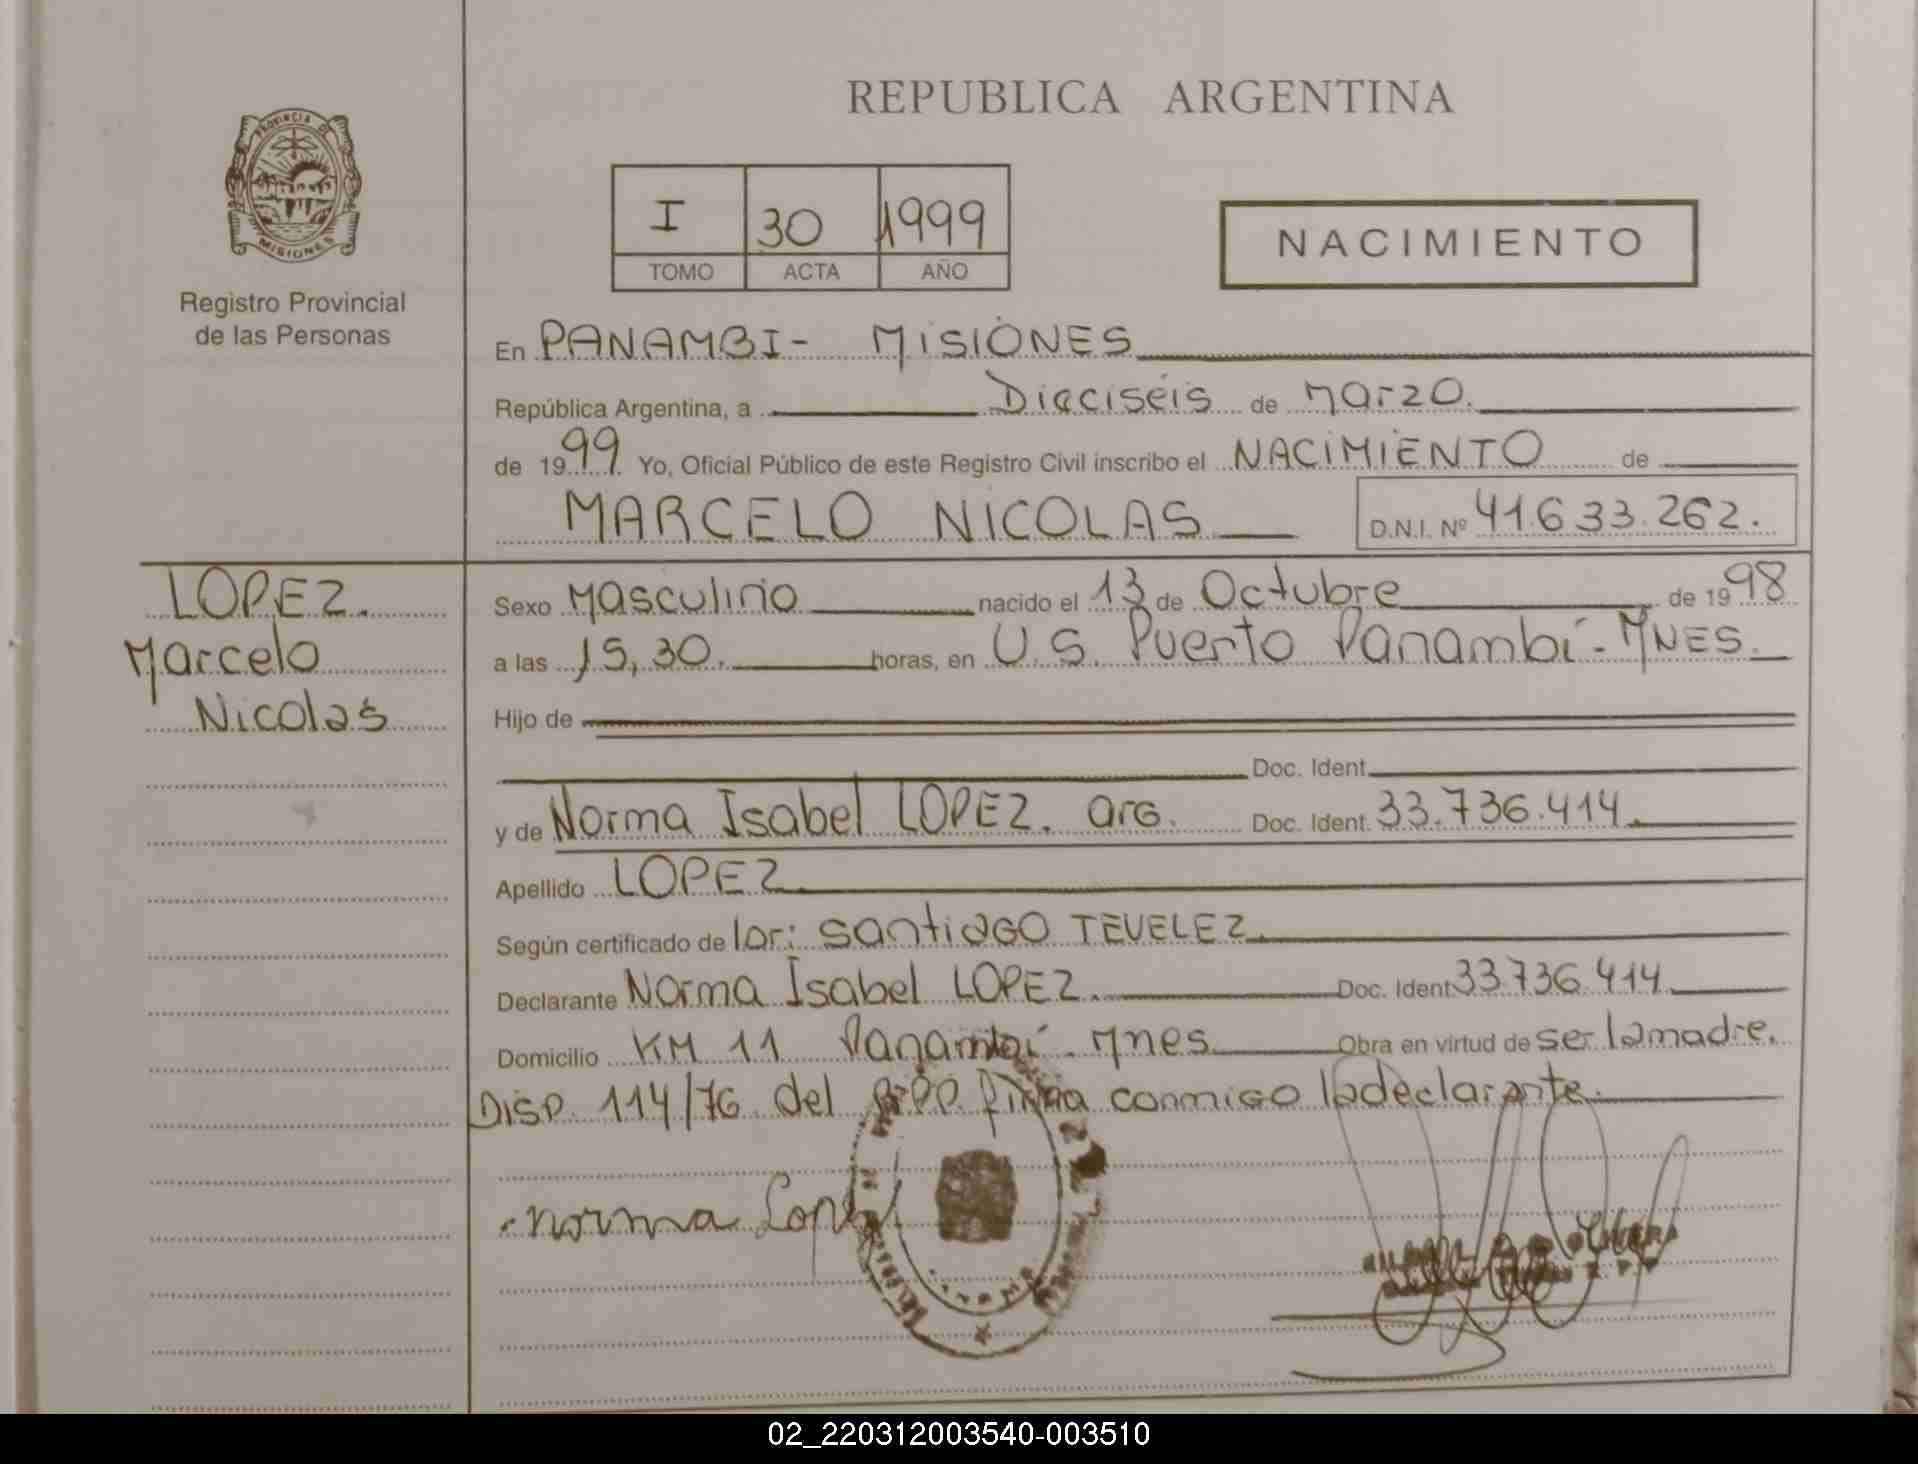 REPUBLICA ARGENTINA
PROVINCIA DE
MISIONES
Registro Provincial
de las Personas
I 30 1999
TOMO ACTA AÑO
NACIMIENTO
En PANAMBI - MISIONES
República Argentina, a Dieciseis de Marzo.
de 1999 Yo, Oficial Público de este Registro Civil inscribo el NACIMIENTO de
MARCELO NICOLAS D.N.I. Nº 41.633.262.
LOPEZ.
Marcelo
Nicolas
Sexo Masculino nacido el 13 de Octubre de 1998
a las 15,30. horas, en U.S. Puerto Panambí - MNES.
Hijo de
Doc. Ident.
y de Norma Isabel LOPEZ. arg. Doc. Ident. 33.736.414.
Apellido LOPEZ
Según certificado de santiago TEVELEZ.
Declarante Norma Isabel LOPEZ. Doc. Ident 33.736.414
Domicilio KM 11 Panambí - Mnes Obra en virtud de ser la madre.
Disp. 114/76 del R.P.P. firma conmigo la declarante.
norma Lopez
02_220312003540-003510